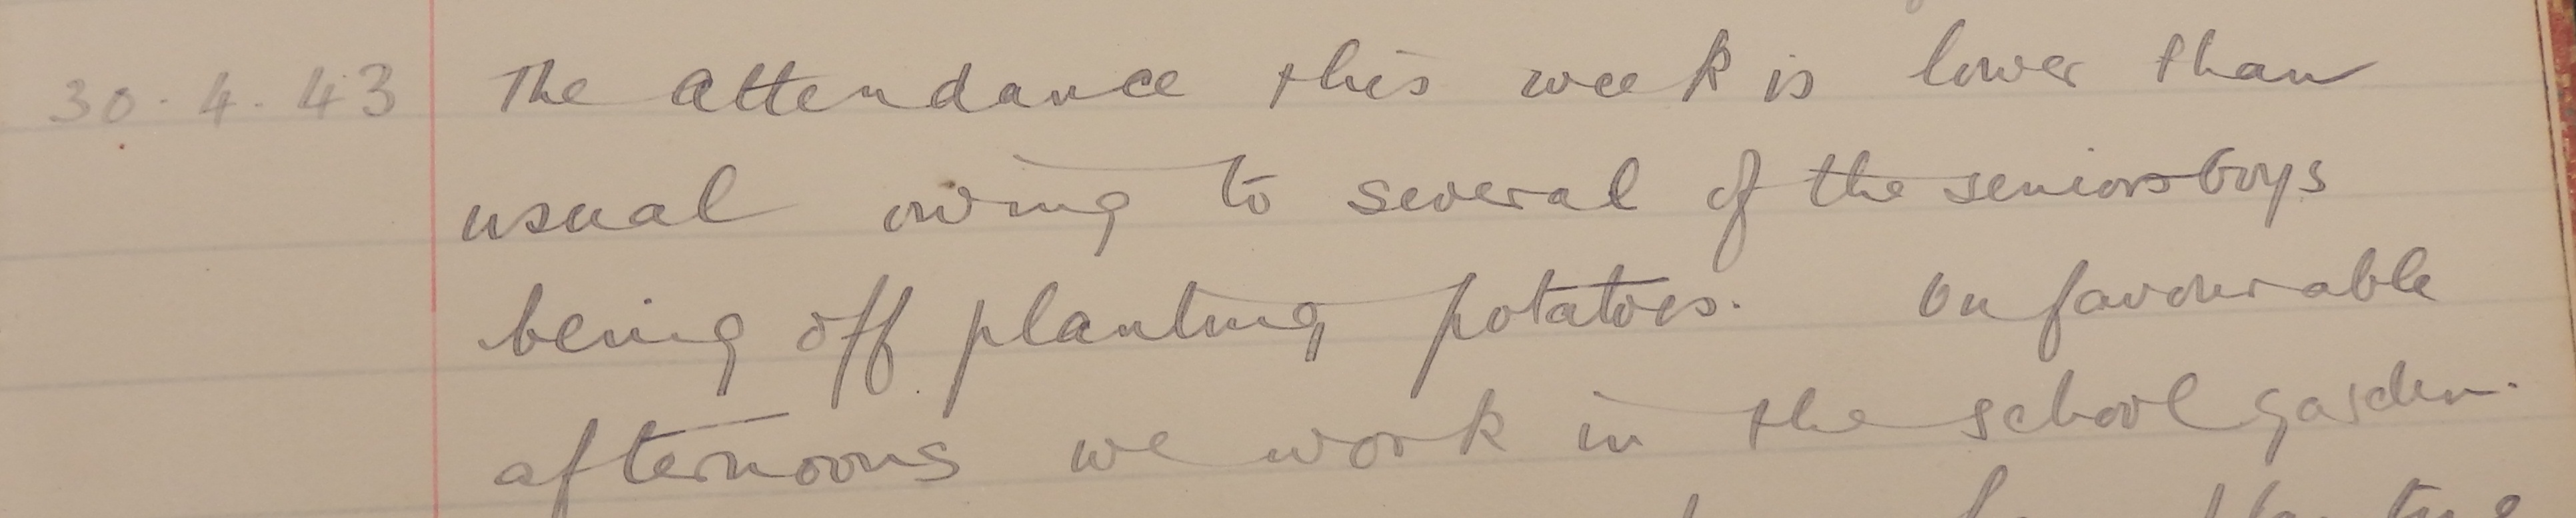 30.4.43 The attendance this week is lower than
usual owing to several of the seniors boys
being off planting potatoes. On favourable
afternoons we work in the school garden.